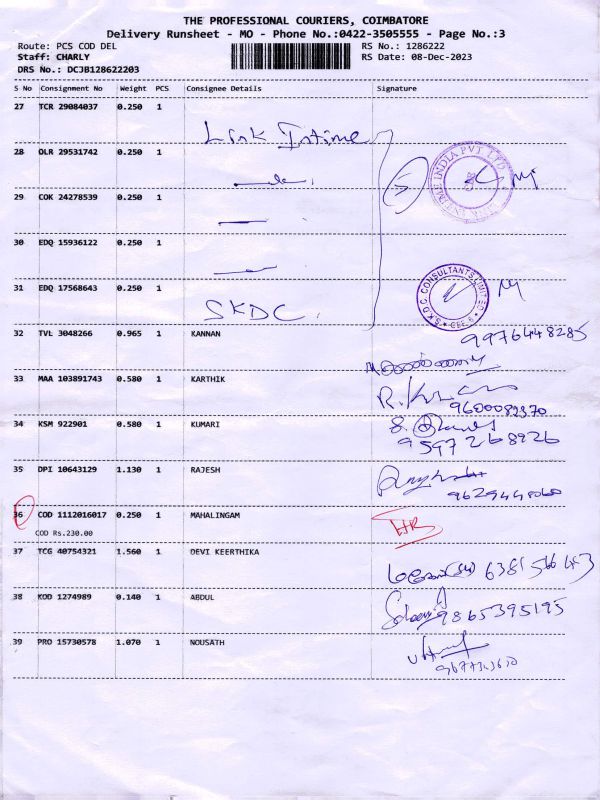 THE PROFESSIONAL COURIERS, COIMBATORE
Delivery Runsheet - MO - Phone No.:0422-3505555 - Page No.:3
Route: PCS COD DEL RS No.: 1286222
Staff: CHARLY RS Date: 08-Dec-2023
DRS No.: DCJB128622203
S No Consignment No Weight PCS Consignee Details Signature
27 TCR 29084037 0.250 1
Link Intime
28 OLR 29531742 0.250 1
29 COK 24278539 0.250 1
30 EDQ 15936122 0.250 1
31 EDQ 17568643 0.250 1
SKDC.
S.K.D.C. CONSULTANTS LIMITED
32 TVL 3048266 0.965 1 KANNAN
9976448285
33 MAA 103891743 0.580 1 KARTHIK
9600082370
34 KSM 922901 0.580 1 KUMARI
9597268926
35 DPI 10643129 1.130 1 RAJESH
36 COD 1112016017 0.250 1 MAHALINGAM
COD Rs.230.00
37 TCG 40754321 1.560 1 DEVI KEERTHIKA
38 KOD 1274989 0.140 1 ABDUL
9865395195
39 PRO 15730578 1.070 1 NOUSATH